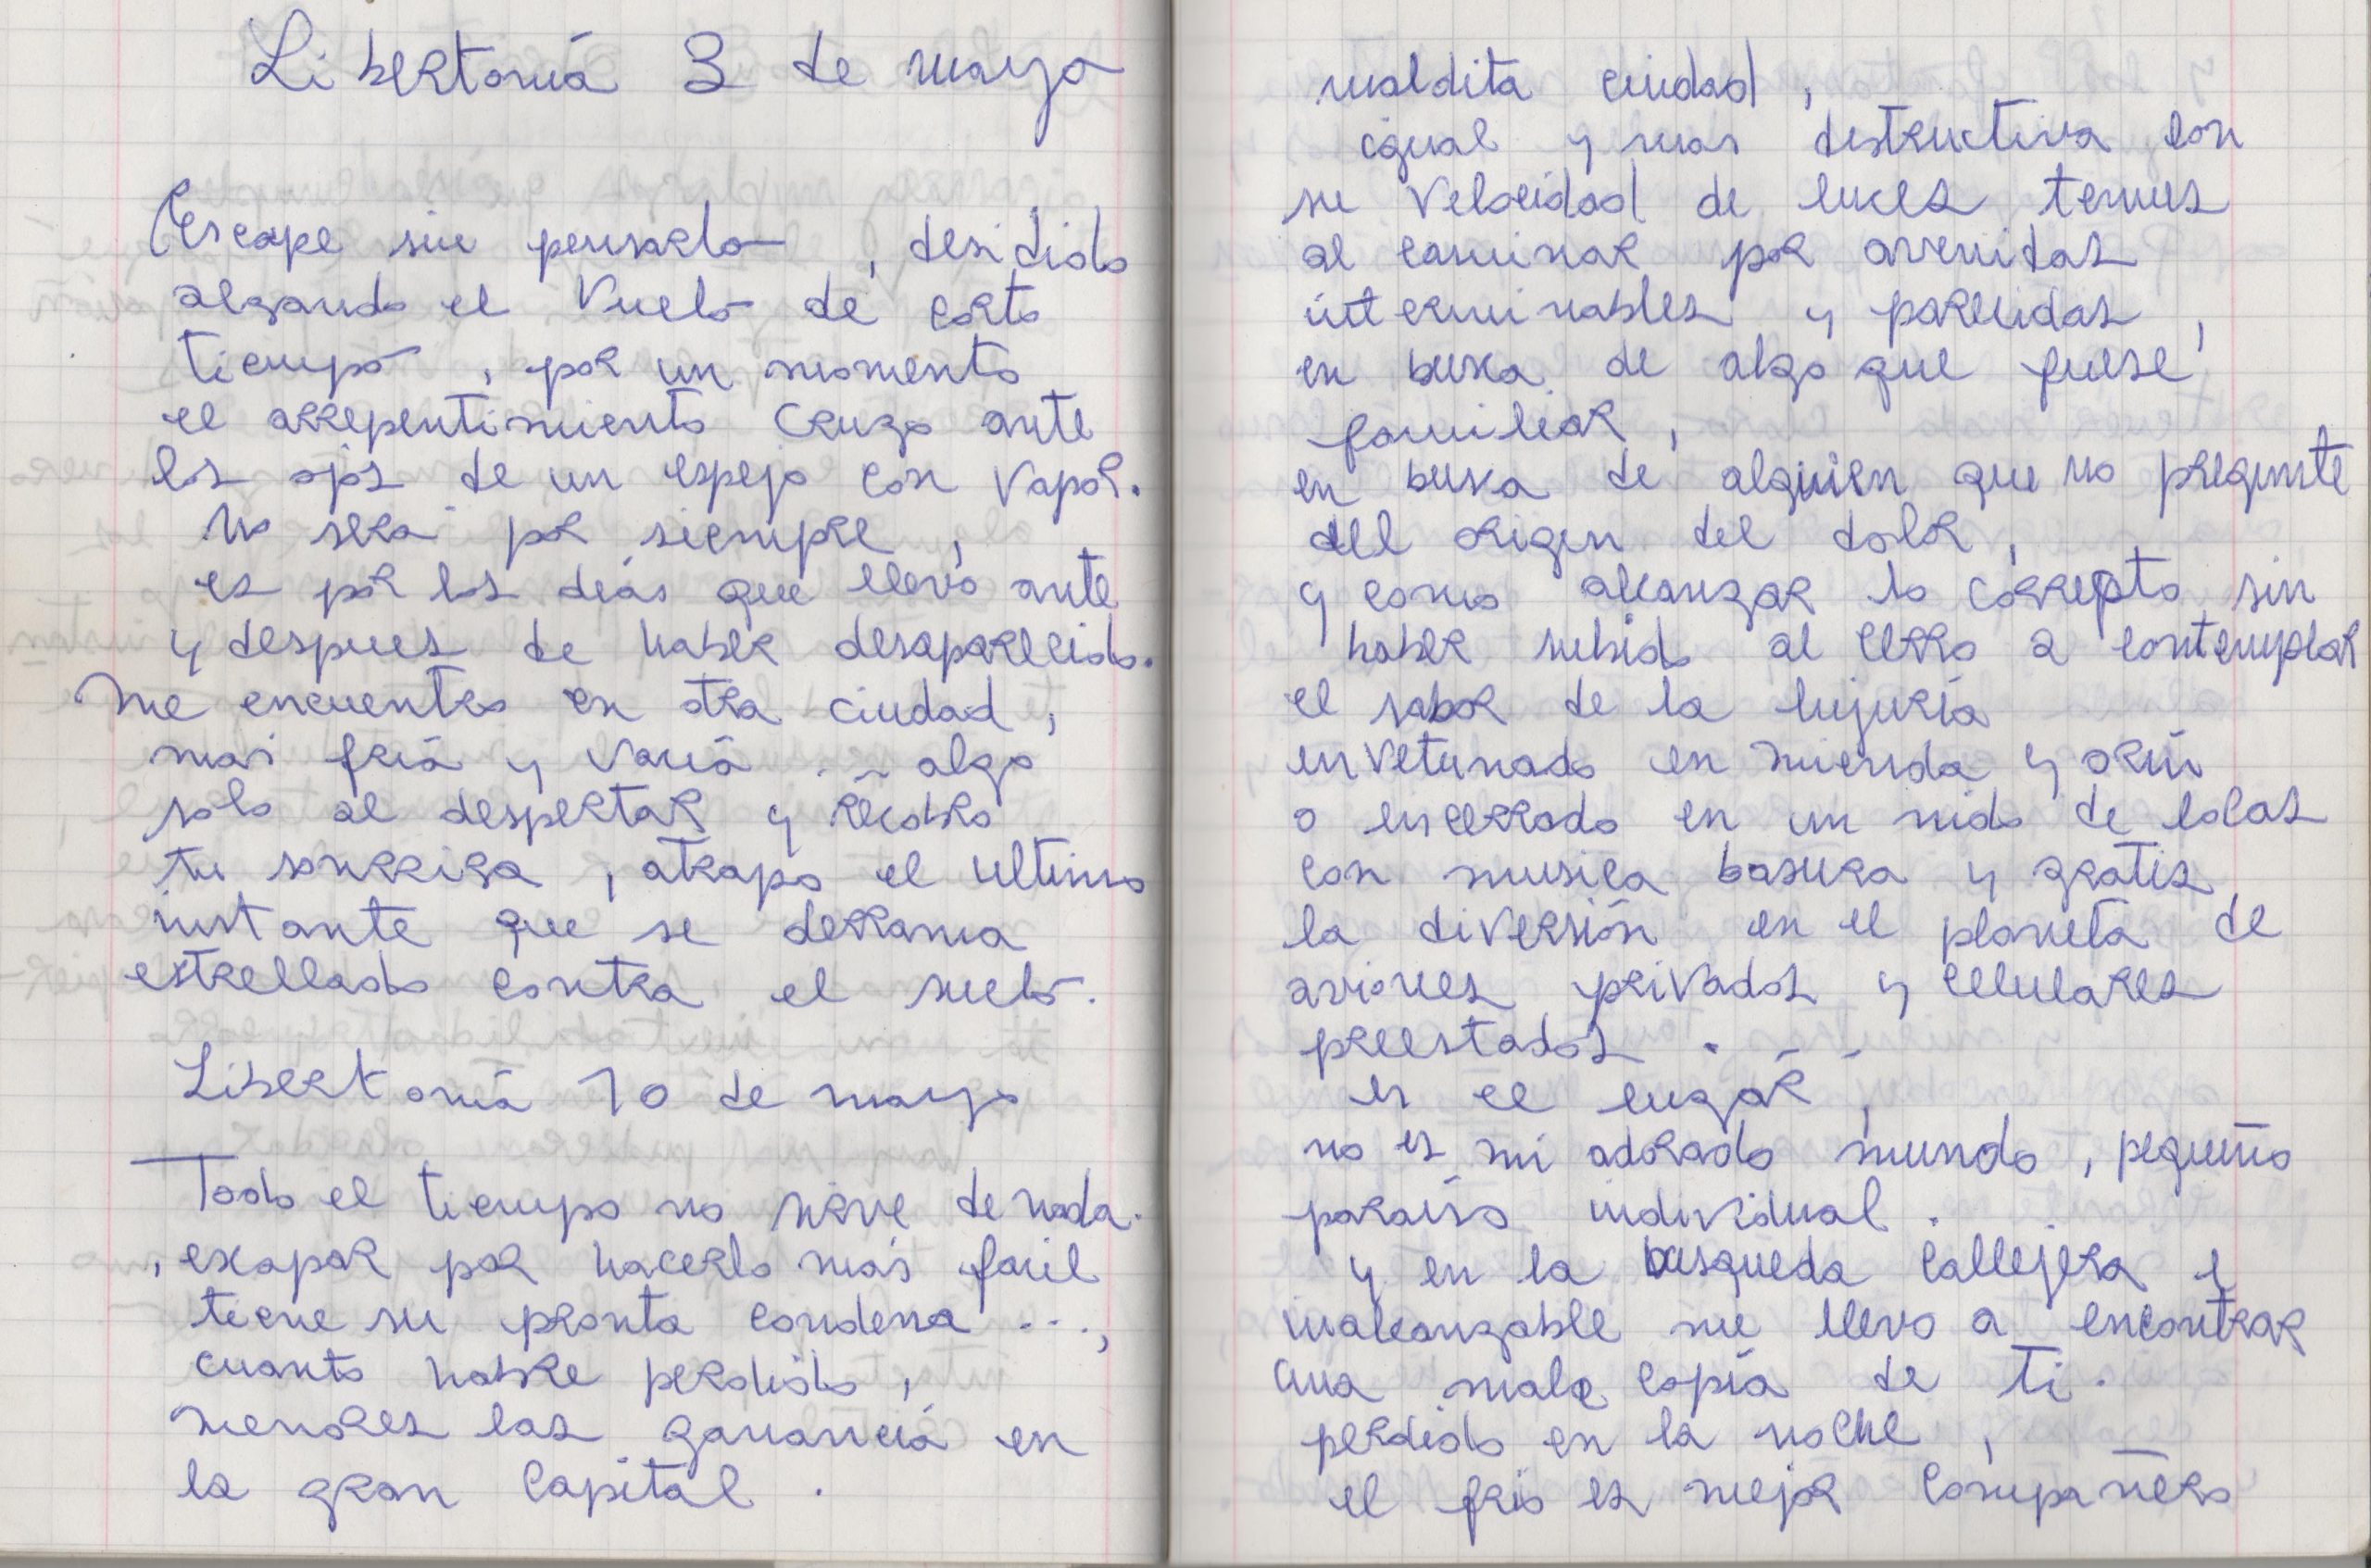 Libertomiá 3 de mayo
Escape sin pensarlo, desidido
alzando el Vuelo de corto
tiempo, por un momento
el arrepentimiento cruzo ante
los ojos de un espejo con Vapor.
No sera por siempre,
es por los diás que llevo ante
y despues de haber desaparecido.
Me encuentro en otra ciudad,
mas friá y vaciá... algo
solo al despertar y recobro
tu sonrriza, atrapo el ultimo
instante que se derrama
estrellado contra el suelo.
Libertomiá 10 de mayo
Todo el tiempo no sirve de nada.
, escapar por hacerlo más facil
tiene su pronta condena ...,
cuanto habre perdido,
menores las gananciá en
la gran Capital.
maldita ciudad,
igual y mas destructiva con
su Velocidad de luces tenues
al caminar por avenidas
interminables y parecidas,
en busca de algo que fuese
familiar,
en busca de alguien que no pregunte
del origen del dolor,
y como alcanzar lo correpto sin
haber subido al cerro a contemplar
el sabor de la lujuria
envetunado en mierda y orin
o encerrado en un nido de locas
con musica basura y gratis
la diversión en el planeta de
aviones privados y celulares
preestados...
es el lugar,
no es mi adorado mundo, pequeño
paraiso individual.
y en la busqueda callejera e
inalcanzable me llevo a encontrar
una mala copia de ti.
perdido en la noche,
el frio es mejor compañero